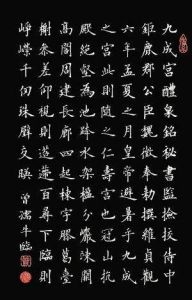 九成宮醴泉銘秘書監撿挍侍中
鉅鹿郡公臣魏徵奉勑撰維貞觀
六年孟夏之月皇帝避暑乎九成
之宮此則隨之仁壽宮也冠山抗
殿絕壑為池跨水架楹分巖竦闕
高閣周建長廊四起棟宇膠葛臺
榭參差仰視則迢遰百尋下臨則
崢嶸千仞珠璧交映 牛臨